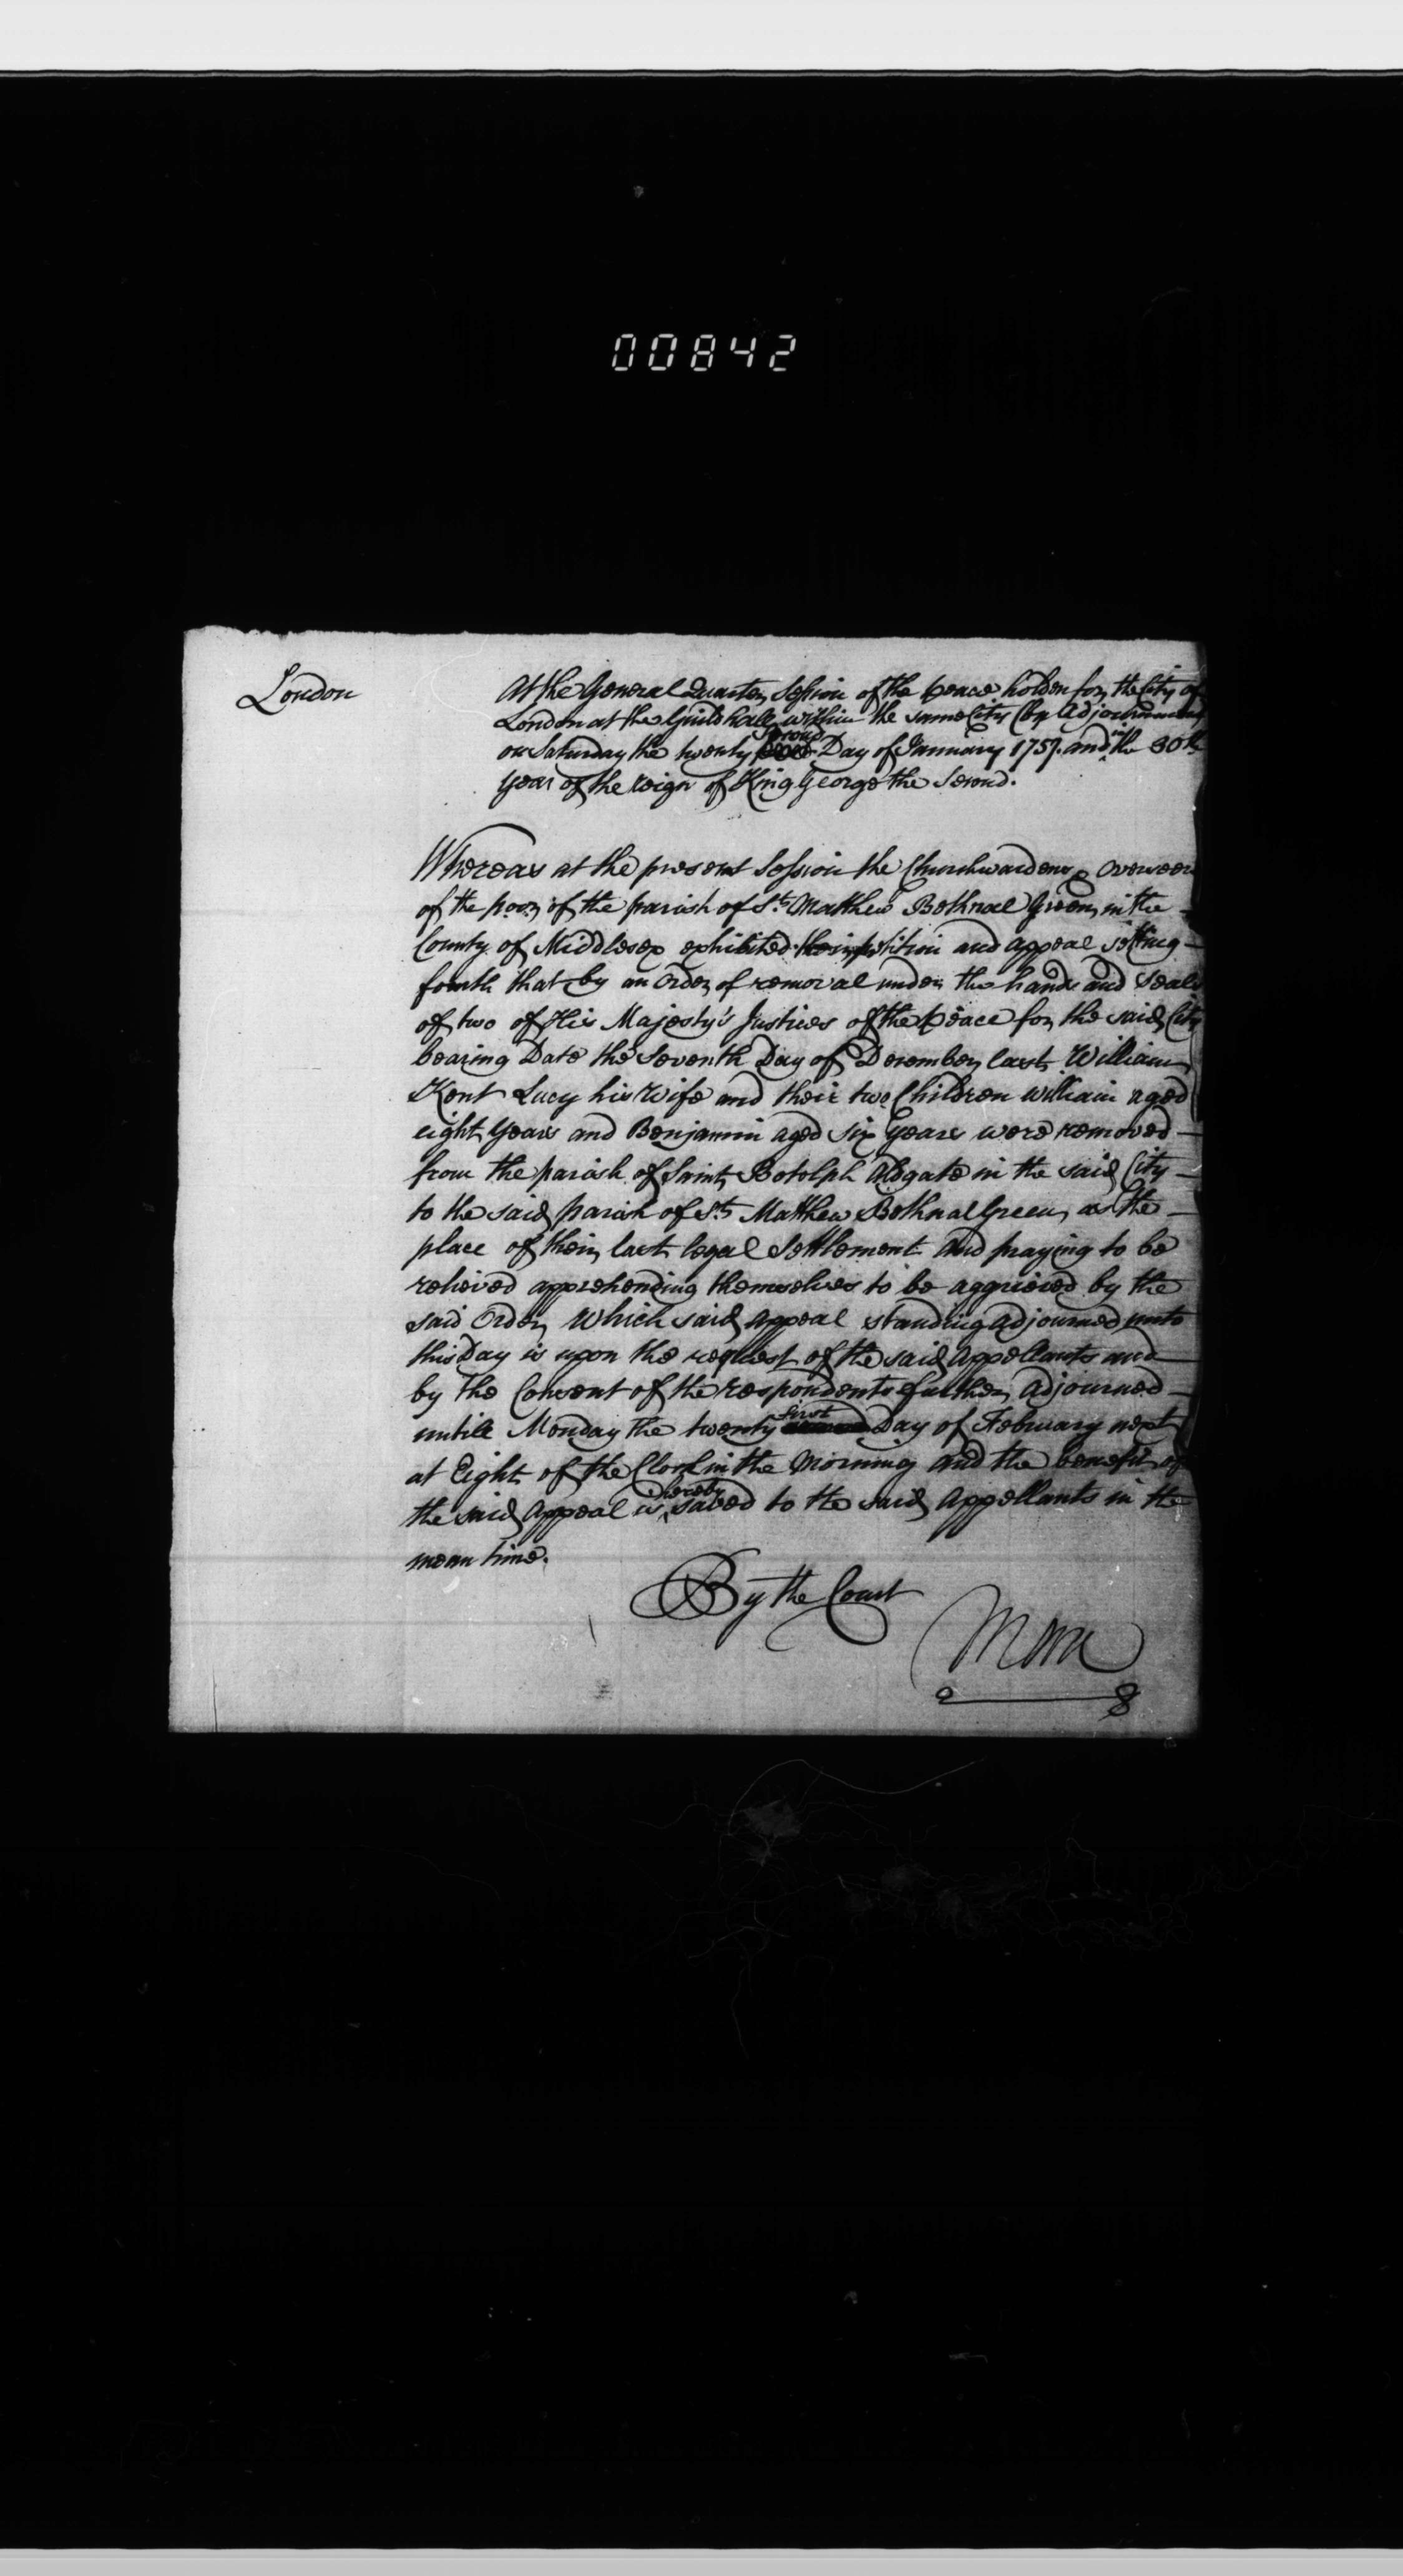 00842
London
At the General Quarter Session of the peace holden for the City of
London at the Guildhall within the same City (by Adjournment)
on Saturday the twenty second Day of January 1757. and in the 30th
year of the reign of King George the Second.
Whereas at the present Session the Churchwardens & Overseers
of the poor of the parish of St. Matthew Bethnal Green in the
County of Middlesex exhibited their petition and appeal setting
fourth that by an Order of removal under the hands and seals
of two of His Majesty's Justices of the peace for the said City
bearing Date the Seventh Day of December last William
Kent Lucy his Wife and their two Children William aged
eight Years and Benjamin aged six Years were removed
from the parish of Saint Botolph Aldgate in the said City
to the said parish of St. Matthew Bethnal Green as the
place of their last legal Settlement And praying to be
relieved apprehending themselves to be aggrieved by the
said Order Which said Appeal standing adjourned unto
this Day is upon the request of the said Appellants and
by the Consent of the Respondents further Adjourned
untill Monday the twenty first Day of February next
at Eight of the Clock in the Morning And the benefit of
the said Appeal is hereby saved to the said Appellants in the
mean time.
By the Court